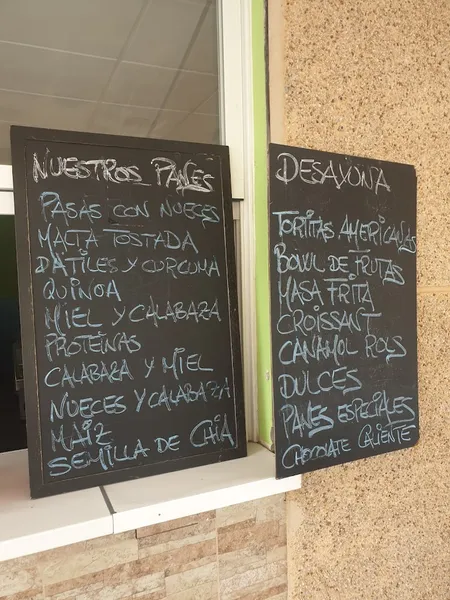 NUESTROS PANES
PASAS CON NUECES
MALTA TOSTADA
DATILES Y CURCUMA
QUINOA
MIEL Y CALABAZA
PROTEINAS
CALABAZA Y MIEL
NUECES Y CALABAZA
MAÍZ
SEMILLA DE CHÍA
DESAYUNA
TORTITAS AMERICANAS
BOWL DE FRUTAS
MASA FRITA
CROISSANT
CANAMOL ROLS
DULCES
PANES ESPECIALES
CHOCOLATE CALIENTE